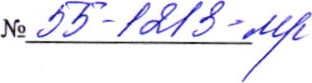 № 55-1213-мр